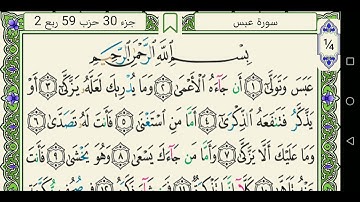 سورة عبس
جزء 30 حزب 59 ربع 2
1/4
بِسْمِ ٱللَّهِ ٱلرَّحْمَٰنِ ٱلرَّحِيمِ
عَبَسَ وَتَوَلَّىٰٓ ١ أَن جَآءَهُ ٱلْأَعْمَىٰ ٢ وَمَا يُدْرِيكَ لَعَلَّهُۥ يَزَّكَّىٰٓ ٣ أَوْ
يَذَّكَّرُ فَتَنفَعَهُ ٱلذِّكْرَىٰٓ ٤ أَمَّا مَنِ ٱسْتَغْنَىٰ ٥ فَأَنتَ لَهُۥ تَصَدَّىٰ ٦
وَمَا عَلَيْكَ أَلَّا يَزَّكَّىٰ ٧ وَأَمَّا مَن جَآءَكَ يَسْعَىٰ ٨ وَهُوَ يَخْشَىٰ ٩ فَأَنتَ